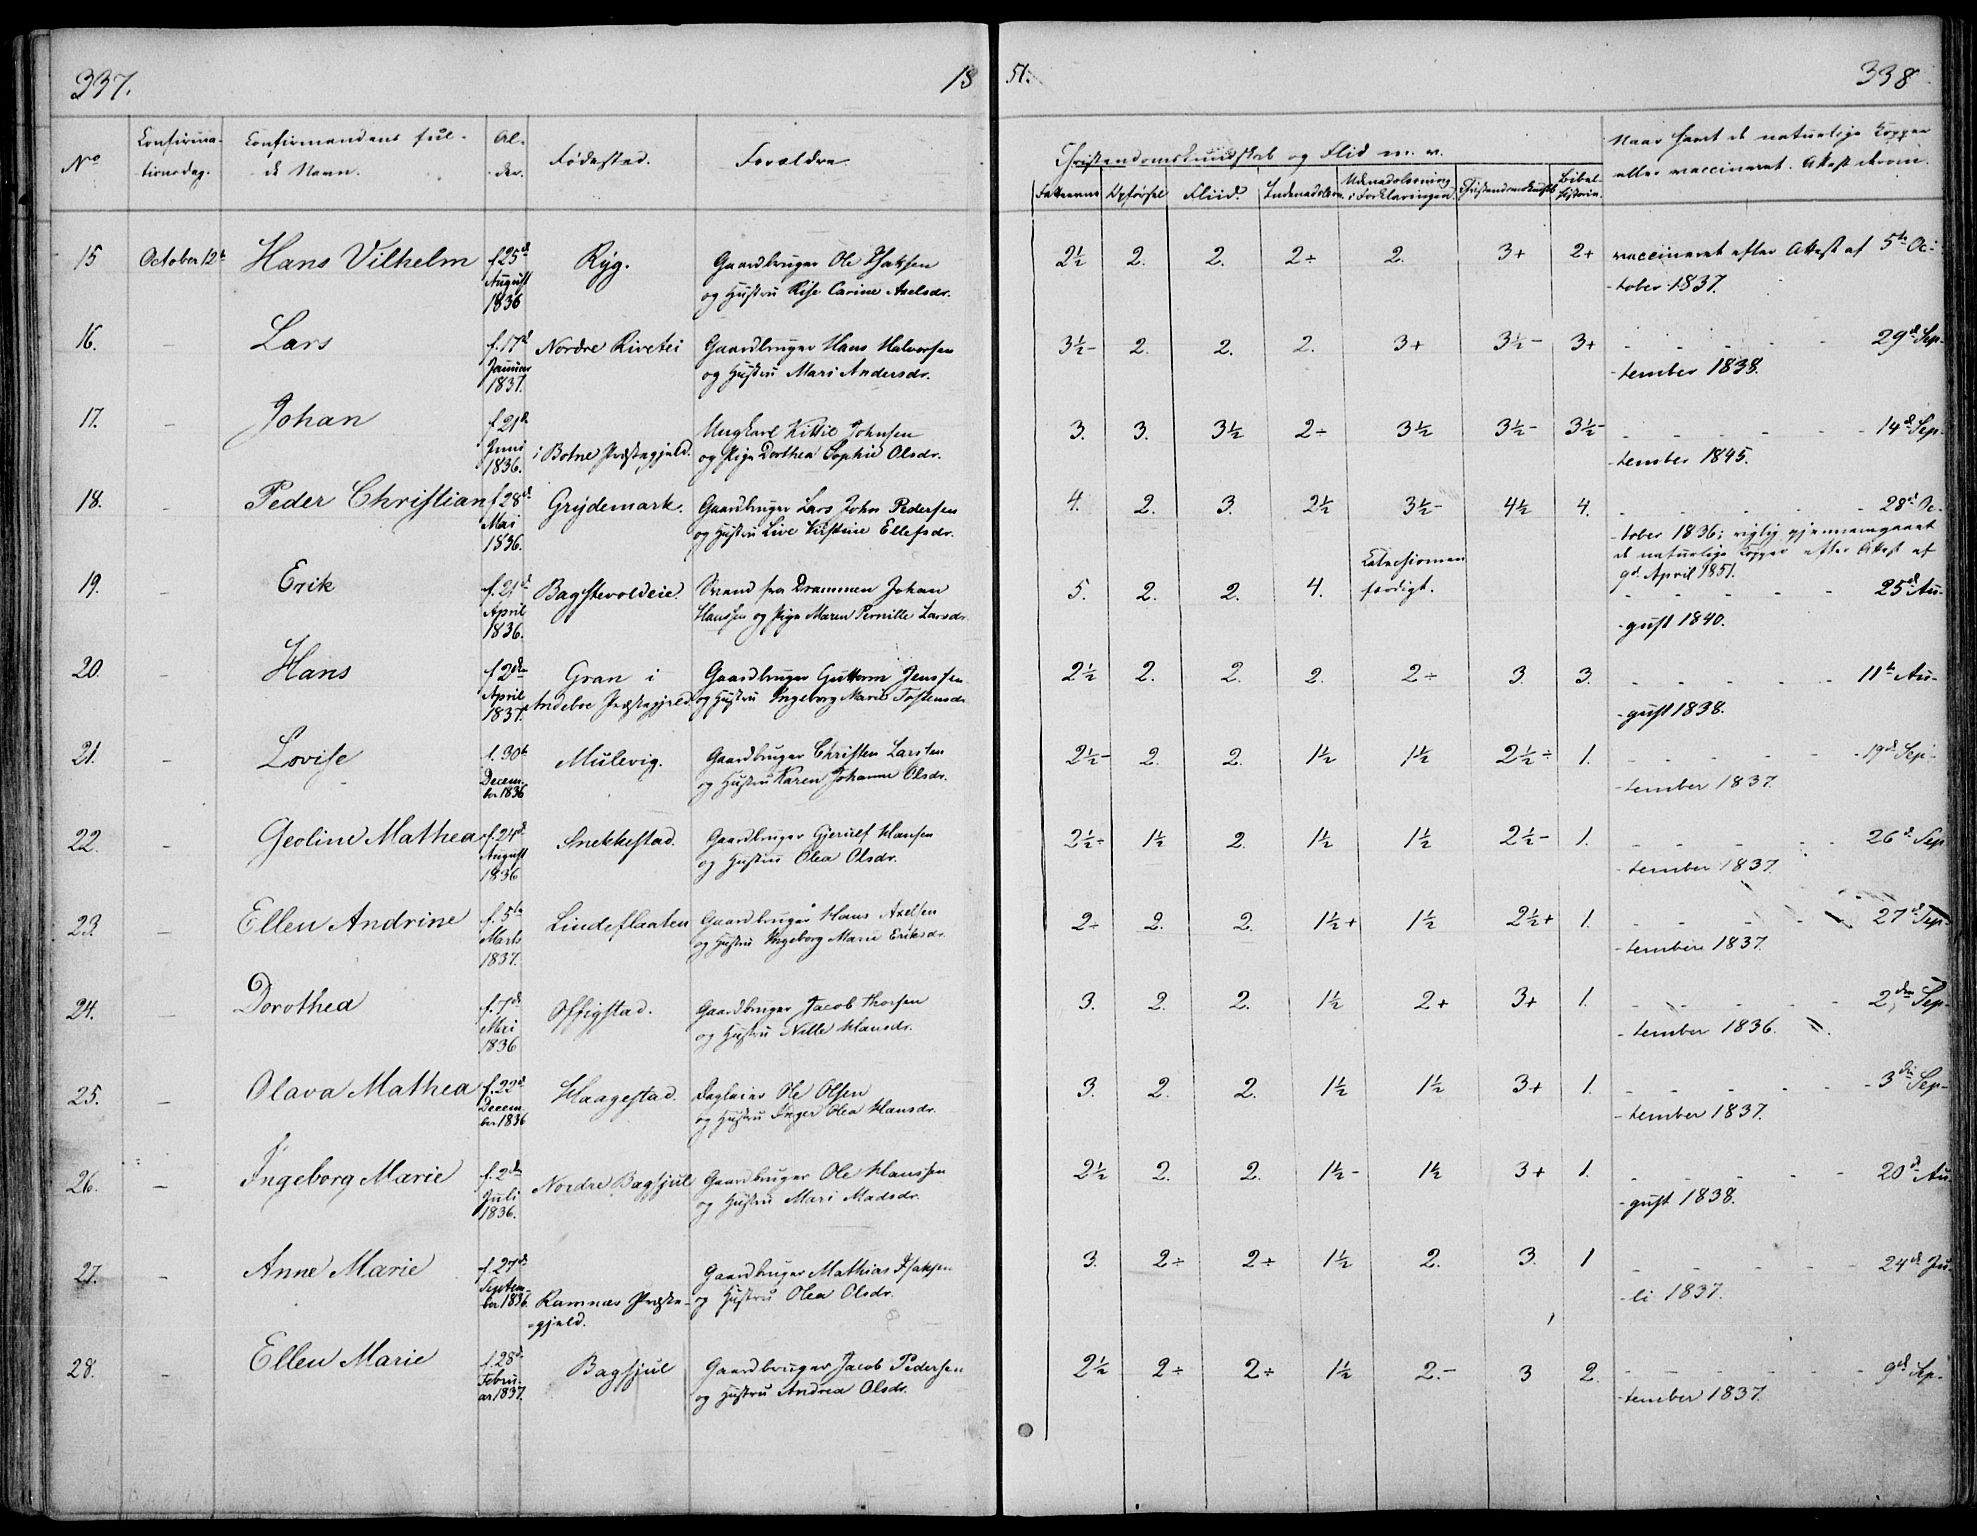 337. 18
No Confirma- Confirmandens ful- Al-
tionsdag. de Navn. der. Fødested. Forældre.
15 October 12te Hans Vilhelm f. 25de Ryg. Gaardbruger Ole Isaksen
August og Hustru Rise Carine Axelsdr.
1836
16. — Lars f. 17de Nordre Rivetei Gaardbruger Hans Halvorsen
Januar og Hustru Mari Andersdr.
1837.
17. — Johan f. 21de Ungkarl Kittil Johnsen
Juni i Botne Præstegjeld. og Pige Dorthea Sophie Olsdr.
1836.
18. — Peder Christian f. 28de Grydemark. Gaardbruger Lars John Pedersen
Mai og Hustru Live Kirstine Ellefsdr.
1836.
19. — Erik f. 21de Bagstevoldeie. Svend fra Drammen Johan
April Hanssen og Pige Maren Pernille Larsdr.
1836.
20. — Hans f. 2den Gran i Gaardbruger Guttorm Jenssen
April Andeboe Præstegjeld. og Hustru Ingeborg Marie Tostensdr.
1837.
21. — Lovise f. 30te Mulevig. Gaardbruger Christen Larsen
Decem- og Hustru Karen Johanne Olsdr.
ber 1836
22. — Geoline Mathea f. 24de Snekkestad. Gaardbruger Gjerulf Hansen
August og Hustru Olea Olsdr.
1836
23. — Ellen Andrine f. 5te Lindeflaaten Gaardbruger Hans Axelsen
Marts og Hustru Ingeborg Marie Eriksdr.
1837.
24. — Dorothea f. 7de Offigstad. Gaardbruger Jacob Thorsen
Mai og Hustru Nille Hansdr.
1836
25. — Olava Mathea f. 22de Haagestad. Dagleier Ole Olsen
Decem- og Hustru Inger Olea Hansdr.
ber 1836
26. — Ingeborg Marie f. 2den Nordre Bagsjul Gaardbruger Ole Hanssen
Juli og Hustru Mari Madsdr.
1836.
27. — Anne Marie f. 27de Gaardbruger Mathias Isaksen
Septem- Ramnæs Præste- og Hustru Olea Olsdr.
ber 1836. -gjeld.
28. — Ellen Marie f. 28de Bagsjul Gaardbruger Jacob Pedersen
Febru- og Hustru Andrea Olsdr.
ar 1837.
51. 338
Christendomskundskab og Flid m. v. Naar havt de naturlige Kopper
eller vaccineret. Attest derom.
Fatteevne Opførsel Fliid. Indenadslæsn. Udenadslæsning i Forklaringen. Christendomskundsk. Bibel-historie.
2½ 2. 2. 2÷ 2. 3+ 2+ vaccineret efter Attest af 5te Oc-
-tober 1837.
3½- 2. 2. 2. 3+ 3½- 3+ - - - - - 29de Sep-
-tember 1838.
3. 3. 3½ 2÷ 3½ 3½- 3½- - - - - - 14de Sep-
-tember 1845.
4. 2. 3. 2½ 3½- 4½ 4. - - - - - 28de Oc-
-tober 1836; rigtig gjennemgaaet
de naturlige Kopper efter Attest af
9de April 1851.
Catechismen
5. 2. 2. 4. færdigt. - - - - - 25de Au-
-gust 1840.
2½ 2. 2. 2. 2÷ 3. 3. - - - - - 11te Au-
-gust 1838.
2½- 2. 2. 1½ 1½ 2½÷ 1. - - - - - 19de Sep-
-tember 1837.
2½÷ 1½ 2. 1½ 1½ 2½- 1. - - - - - 26de Sep
-tember 1837.
2÷ 2. 2. 1½+ 1½ 2½+ 1. - - - - - 27de Sep-
-tember 1837.
3. 2. 2. 1½ 2+ 3+ 1. - - - - - 2den Sep-
-tember 1836.
3. 2. 2. 1½ 1½ 3+ 1. - - - - - 3die Sep-
-tember 1837.
2½ 2. 2. 1½- 1½ 3+ 1. - - - - - 20de Au
-gust 1838.
3. 2÷ 2÷ 1½ 2. 3. 1 - - - - - 24de Ju-
-li 1837.
2½ 2÷ 2÷ 1½ 2.- 3 2. - - - - - 9de Sep-
-tember 1837.